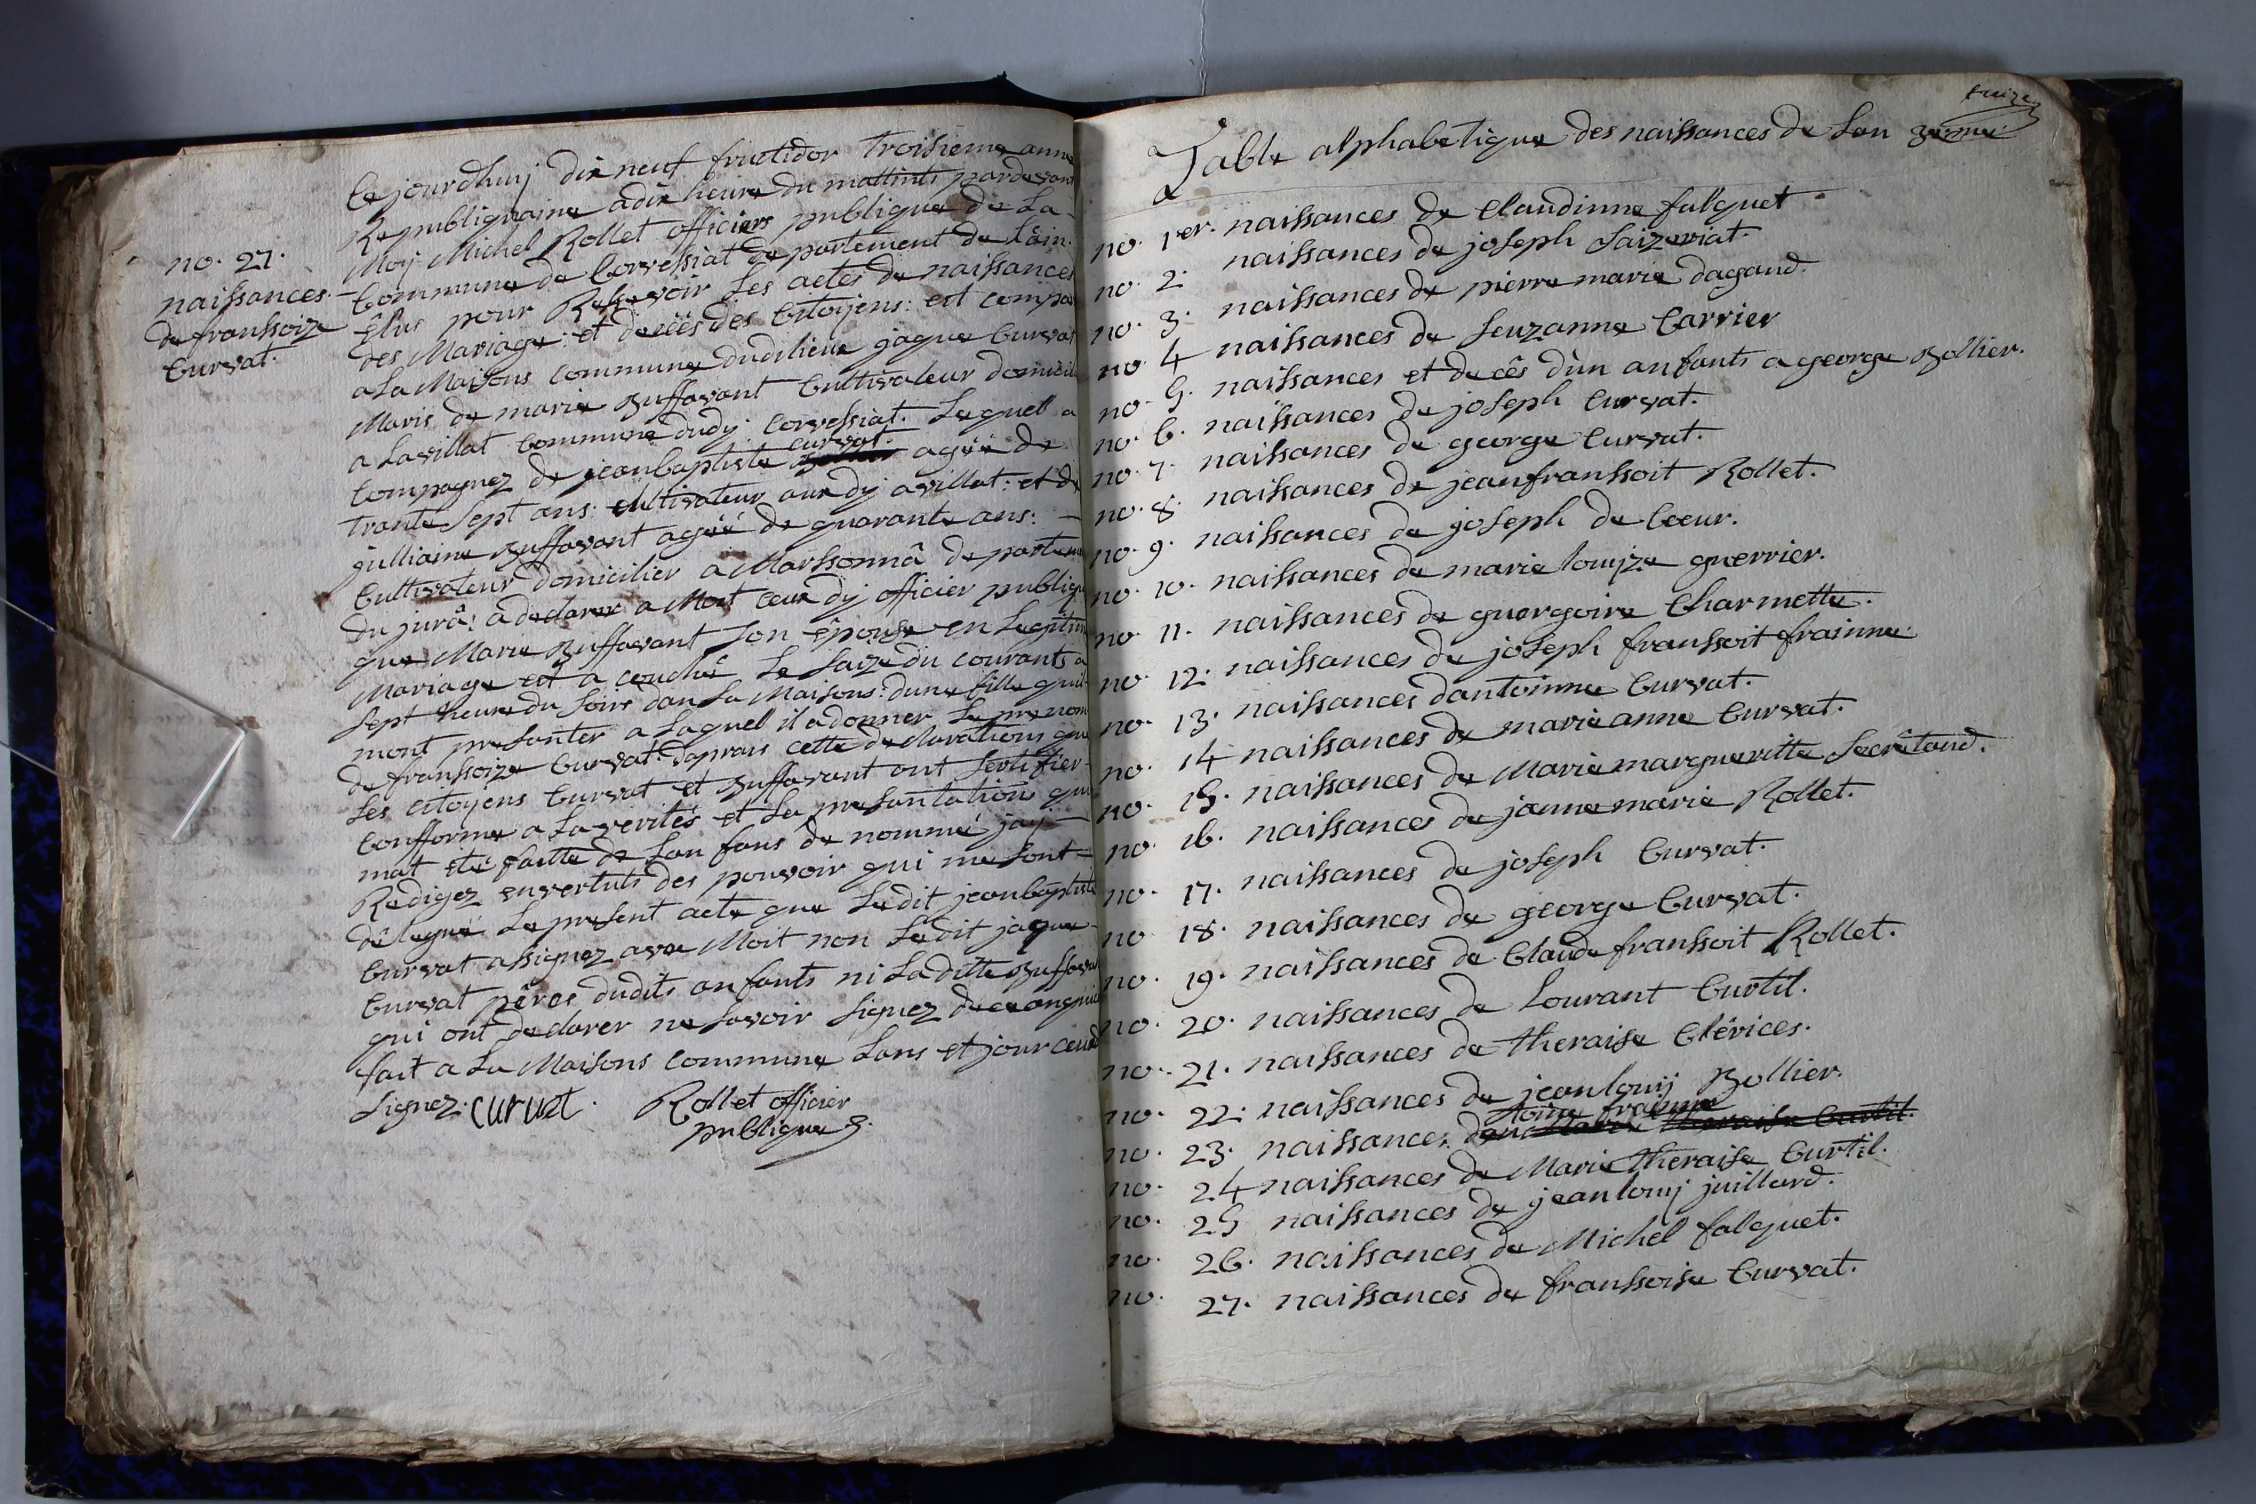 no. 27.
naissances.
de franssoize
Curvat.
Ce jourdhuij dix neuf fructidor Troisieme anne
Republiquaine a dix heure du mattints pardevant
Moij Michel Rollet officiers publique de La
Commune de Corvessiat departement de Lâin.
Êlus pour Resevoir Les actes de naissances
des Mariage: et decêês des Citoijens: est compa
a La Maisons commune dudilieux jaque Curvat
Maris de marie Buffavant Cultivateur domicili
a Lavillat Commune dudij Corvessiat. Lequel a
Compagnez de jeanbaptiste curvat. agéé de
Trante Sept ans: cultivateur audij avillat: et de
julliaine Buffavant agéé de quarante ans:
Cultivateur domicilier a Marssonnâ departeme
du jurâ: a declarer a Moit ceux dij officier publiqu
que Marie Buffavant Son épouse en Legitim
Mariage est a couchê Le Saize du courants a
Sept heure du Soire dan La Maisons: dune fille quil
mont presanter a Laquel il a donner Le prenom
de franssoize Curvat. daprais cette declarations que
Les citoijens Curvat et Buffavant ont Sertifier
Confforme a La verités et La presantations qui
mat eté faitte de Lan fans de nommé jaij
Redigez envertuts des pouvoir qui me Sont
délegué Le present acte que Ledit jeanbaptiste
Curvat assignez avec Moit non Ledit jaque
Curvat pêres dudits anfants ni Laditte Buffavan
qui ont declarer ne Savoir Signez de ce anquis
fait a La Maisons commune Lans et jour ceux
Signez. curvat. Rollet officier
publique
Table alphabetique des naissances de Lan 3eme
no. 1er. naissances de Claudinne falquet
no. 2. naissances de joseph Saizeriat.
no. 3. naissances de pierre marie dagand.
no. 4 naissances de Suzanne Carrier
no. 5. naissances et decês dùn anfants a george Bollier.
no. 6. naissances de joseph Curvat.
no. 7. naissances de george Curvat.
no. 8. naissances de jeanfranssoit Rollet.
no. 9. naissances de joseph de Coeur.
no. 10. naissances de marie louize guerrier.
no. 11. naissances de guergoire Charmette.
no. 12. naissances de joseph franssoit frainne.
no. 13. naissances dantoinne Curvat.
no. 14 naissances de marie anne Curvat.
no. 15. naissances de Marie margueritte Secrétand.
no. 16. naissances de jeanne marie Rollet.
no. 17. naissances de joseph Curvat.
no. 18. naissances de george Curvat.
no. 19. naissances de Claude franssoit Rollet.
no. 20. naissances de Lourant Curtil.
no. 21. naissances de theraise Clêrices.
no. 22. naissances de jeanlouij Bollier.
no. 23. naissances dantoine frainne
no. 24 naissances de Marie theraise Curtil.
no. 25 naissances de jeanlouij juillard.
no. 26. naissances de Michel falquet.
no. 27. naissances de franssoise Curvat.